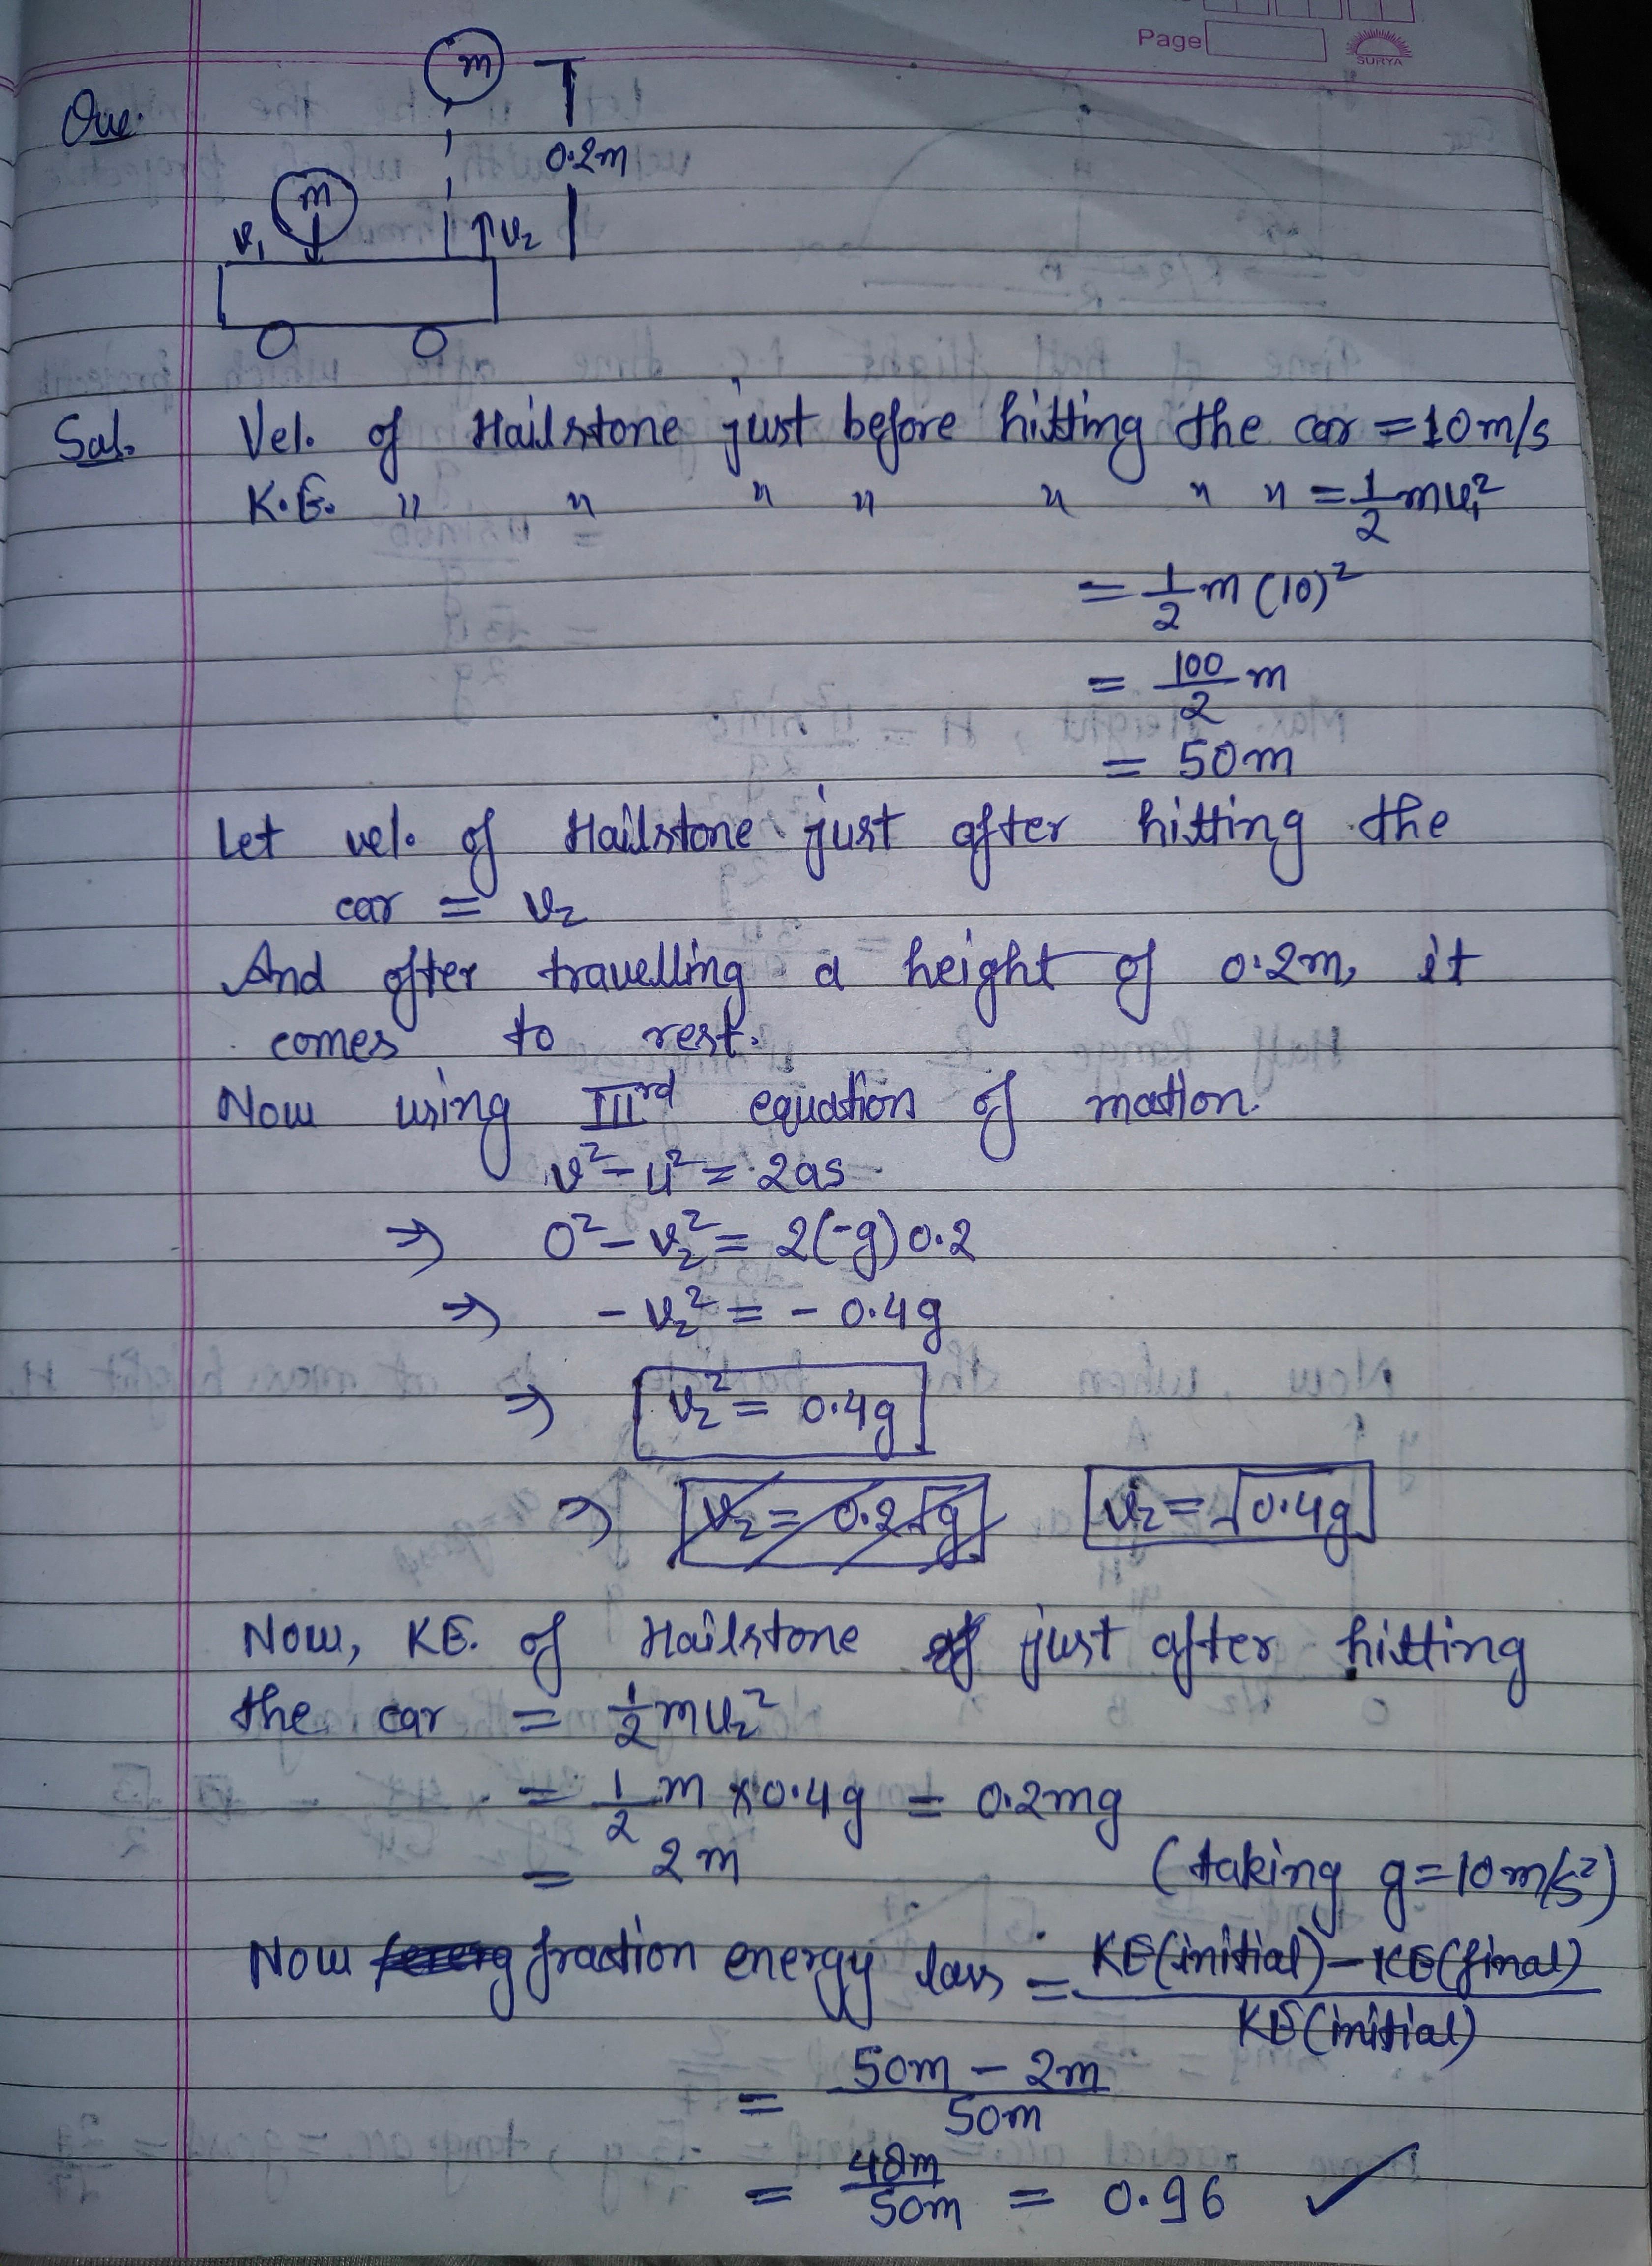 Page
SURYA
Que.
m
0.2m
m
v₁
↑v₂
Sol. Vel. of Hailstone just before hitting the car = 10 m/s
K.E. " " " " " " " = 1/2 mv₁²
= 1/2 m (10)²
= 100/2 m
= 50m
Let vel. of Hailstone just after hitting the
car = v₂
And after travelling a height of 0.2m, it
comes to rest.
Now using IIIrd equation of motion.
v² - u² = 2as
⇒ 0² - v₂² = 2(-g) 0.2
⇒ - v₂² = - 0.4g
⇒ v₂² = 0.4g
⇒ v₂ = 0.2√g v₂ = √0.4g
Now, KE. of Hailstone of just after hitting
the car = 1/2 mv₂²
= 1/2 m × 0.4g = 0.2mg
= 2m (taking g = 10 m/s²)
Now fraction energy loss = KE(initial) - KE(final) / KE(initial)
= 50m - 2m / 50m
= 48m / 50m = 0.96 ✓